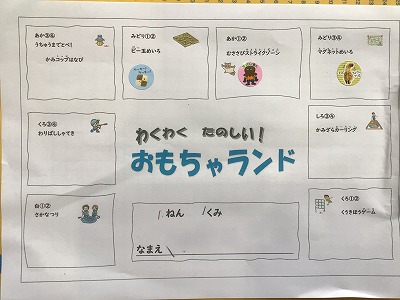 あか③④
うちゅうまでとべ!
かみコップはなび
みどり①②
ビー玉めいろ
あか①②
むささびストライクゾーン
みどり③④
マグネットめいろ
くろ③④
わりばししゃてき
わくわく たのしい!
おもちゃランド
しろ③④
かみざらカーリング
白①②
さかなつり
1 ねん 1 くみ
なまえ
くろ①②
くうきほうゲーム